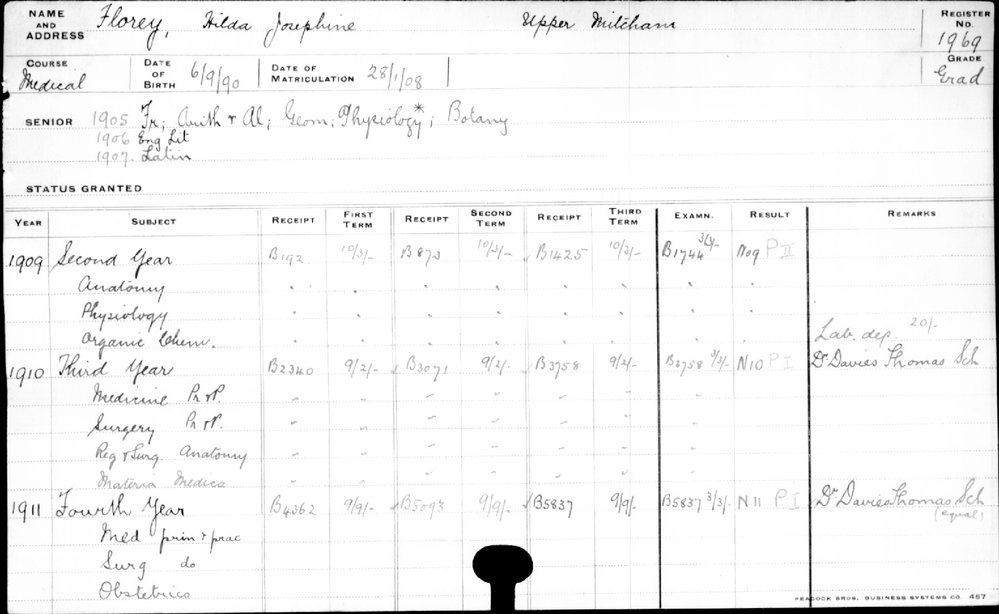 NAME AND ADDRESS Florey, Hilda Josephine Upper Mitcham REGISTER No. 1969
COURSE Medical DATE OF BIRTH 6/9/90 DATE OF MATRICULATION 28/1/08 GRADE Grad
SENIOR 1905 Fr; Arith + Al; Geom; Physiology*; Botany
1906 Eng Lit
1907. Latin
STATUS GRANTED
YEAR SUBJECT RECEIPT FIRST TERM RECEIPT SECOND TERM RECEIPT THIRD TERM EXAMN. RESULT REMARKS
1909 Second Year B192 10/3/- B873 10/3/- B1425 10/3/- B1744 3/3/- N09 P II
Anatomy
Physiology
Organic Chem. Lab. dep. 20/-
1910 Third Year B2340 9/2/- B3071 9/2/- B3758 9/2/- B3758 3/3/- N10 P I Dr Davies Thomas Sch
Medicine Pr & P.
Surgery Pr & P.
Reg & Surg. Anatomy
Materia Medica
1911 Fourth Year B4362 9/9/- B5093 9/9/- B5837 9/9/- B5837 3/3/- N11 P I Dr Davies Thomas Sch
(equal)
Med prin & prac
Surg do
Obstetrics
PEACOCK BROS. BUSINESS SYSTEMS CO. 457